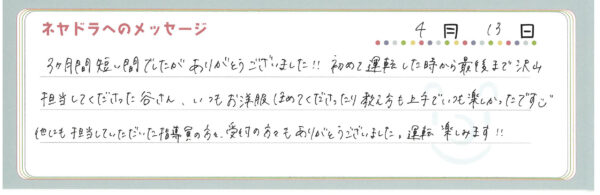 ネヤドラへのメッセージ
4月13日
3ヶ月間短い間でしたがありがとうございました!! 初めて運転した時から最後まで沢山
担当してくださった谷さん、いつもお洋服ほめてくださったり教え方も上手でいつも楽しかったです
他にも担当していただいた指導員の方々、受付の方々もありがとうございました。運転楽しみます!!